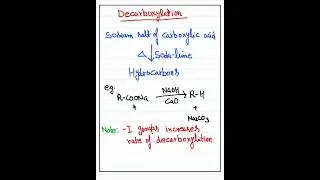 Decarboxylation
Sodium salt of carboxylic acid
Δ ↓ Soda-lime
Hydrocarbons
eg:
R-COONa NaOH → R-H
CaO
+ +
Na₂CO₃
Note: -I groups increases
rate of decarboxylation